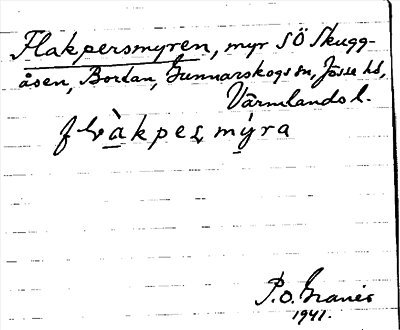 Flakpersmyren, myr SÖ Skugg-
åsen, Bordan, Gunnarskogs sn, Jösse hd,
Värmlands l.
mýra
P.O. Granér
1941.